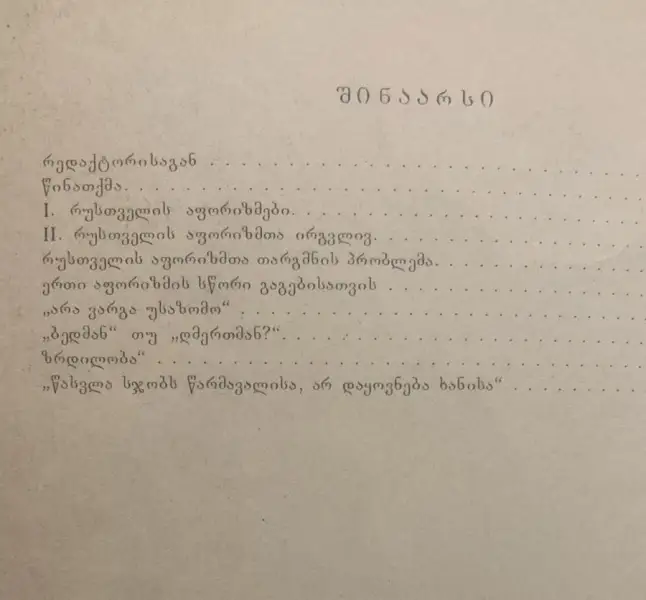 შინაარსი
რედაქტორისაგან . . . . . . . . . . . . . . . . . . . .
წინათქმა. . . . . . . . . . . . . . . . . . . . . . . .
I. რუსთველის აფორიზმები. . . . . . . . . . . . . . . .
II. რუსთველის აფორიზმთა ირგვლივ. . . . . . . . . . . .
რუსთველის აფორიზმთა თარგმნის პრობლემა. . . . . . . . .
ერთი აფორიზმის სწორი გაგებისათვის . . . . . . . . . . .
„არა ვარგა უსაზომო“ . . . . . . . . . . . . . . . . . .
„ბედმან“ თუ „ღმერთმან?“. . . . . . . . . . . . . . . .
ზრდილობა“ . . . . . . . . . . . . . . . . . . . . . . .
„წასვლა სჯობს წარმავალისა, არ დაყოვნება ხანისა“ . . . . . .